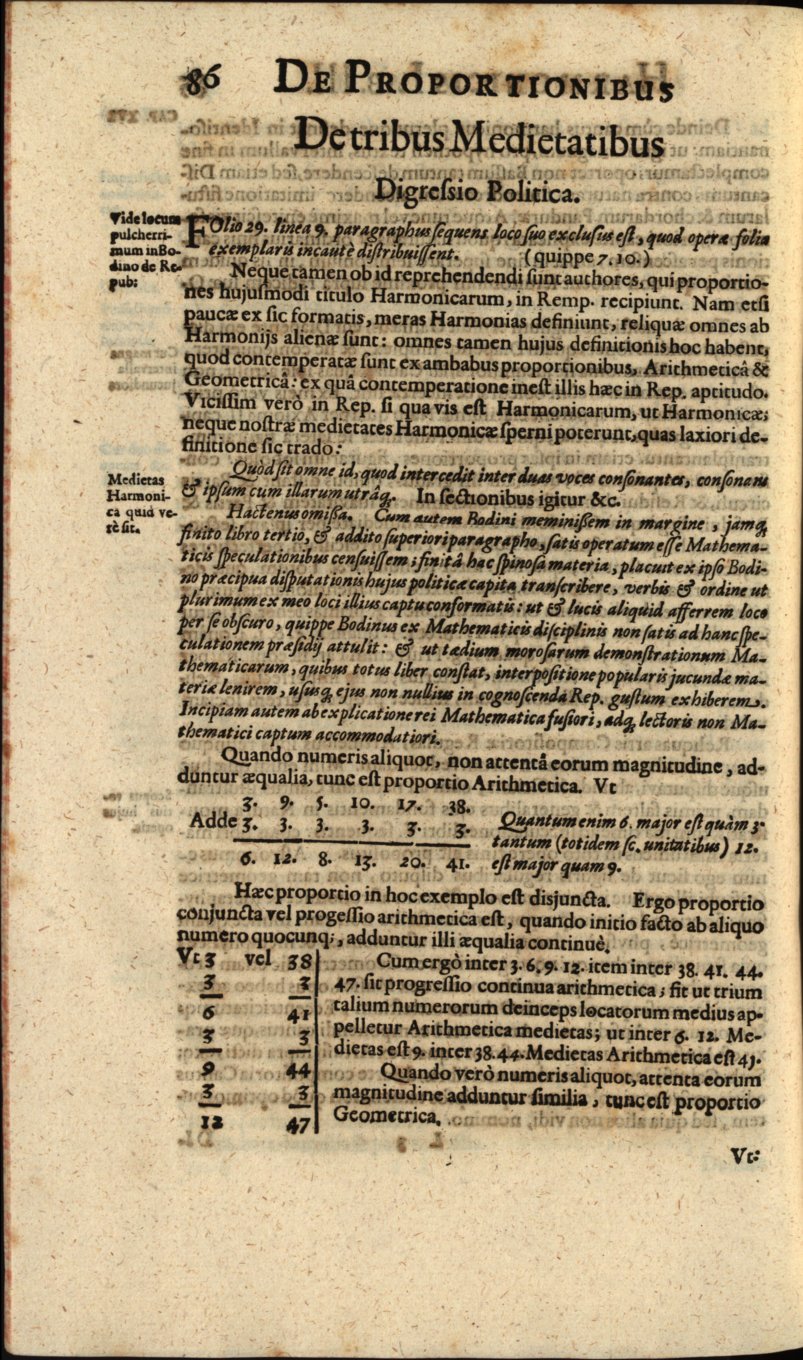 86 DE PROPORTIONIBUS
De tribus Medietatibus
Digreſsio Politica.
Vide locum
pulcherri-
mum in Bo-
dino de Re-
pub:
FOlio 29. linea 9. paragraphus ſequens loco ſuo excluſus eſt, quod operæ folia
exemplaris incautè diſtribuiſſent. (quippe 7. 10.)
Neque tamen ob id reprehendendi ſunt authores, qui proportio-
nes hujuſmodi titulo Harmonicarum, in Remp. recipiunt. Nam etſi
paucæ ex ſic formatis, meras Harmonias definiunt, reliquæ omnes ab
Harmonijs alienæ ſunt: omnes tamen hujus definitionis hoc habent,
quod contemperatæ ſunt ex ambabus proportionibus, Arithmeticâ &
Geometricâ: ex quâ contemperatione ineſt illis hæc in Rep. aptitudo.
Viciſſim verò in Rep. ſi qua vis eſt Harmonicarum, ut Harmonicæ;
neque noſtræ medietates Harmonicæ ſperni poterunt, quas laxiori de-
finitione ſic trado:
Medietas
Harmoni-
ca quid ve-
rè ſit.
Quòd ſit omne id, quod intercedit inter duas voces conſonantes, conſonans
& ipſum cum illarum utráq;. In ſectionibus igitur &c.
Hactenus omiſſa. Cum autem Bodini meminiſſem in margine, jamq;
finito libro tertio, & addito ſuperiori paragrapho, ſatis operatum eſſe Mathema-
ticis ſpeculationibus cenſuiſſem; finitâ hac ſpinoſâ materia, placuit ex ipſo Bodi-
no præcipua diſputationis hujus politicæ capita tranſcribere, verbis & ordine ut
plurimum ex meo loci illius captu conformatis: ut & lucis aliquid afferrem loco
per ſe obſcuro, quippe Bodinus ex Mathematicis diſciplinis non ſatis ad hanc ſpe-
culationem præſidij attulit: & ut tædium moroſarum demonſtrationum Ma-
thematicarum, quibus totus liber conſtat, interpoſitione popularis jucundæ ma-
teriæ lenirem, uſusq; ejus non nullius in cognoſcenda Rep. guſtum exhiberem.
Incipiam autem ab explicatione rei Mathematica fuſiori, adq; lectoris non Ma-
thematici captum accommodatiori.
Quando numeris aliquot, non attentâ eorum magnitudine, ad-
duntur æqualia, tunc eſt proportio Arithmetica. Vt
3. 9. 5. 10. 17. 38.
Adde 3. 3. 3. 3. 3. 3.
6. 12. 8. 13. 20. 41.
Quantum enim 6. major eſt quàm 3.
tantum (totidem ſc. unitatibus) 12.
eſt major quam 9.
Hæc proportio in hoc exemplo eſt disjuncta. Ergo proportio
conjuncta vel progeſſio arithmetica eſt, quando initio facto ab aliquo
numero quocunq;, adduntur illi æqualia continuè.
Vt 3 vel 38
3 3
6 41
3 3
9 44
3 3
12 47
Cum ergò inter 3. 6. 9. 12. item inter 38. 41. 44.
47. ſit progreſſio continua arithmetica; fit ut trium
talium numerorum deinceps locatorum medius ap-
pelletur Arithmetica medietas; ut inter 6. 12. Me-
dietas eſt 9. inter 38. 44. Medietas Arithmetica eſt 41.
Quando verò numeris aliquot, attenta eorum
magnitudine adduntur ſimilia, tunc eſt proportio
Geometrica.
Vt: